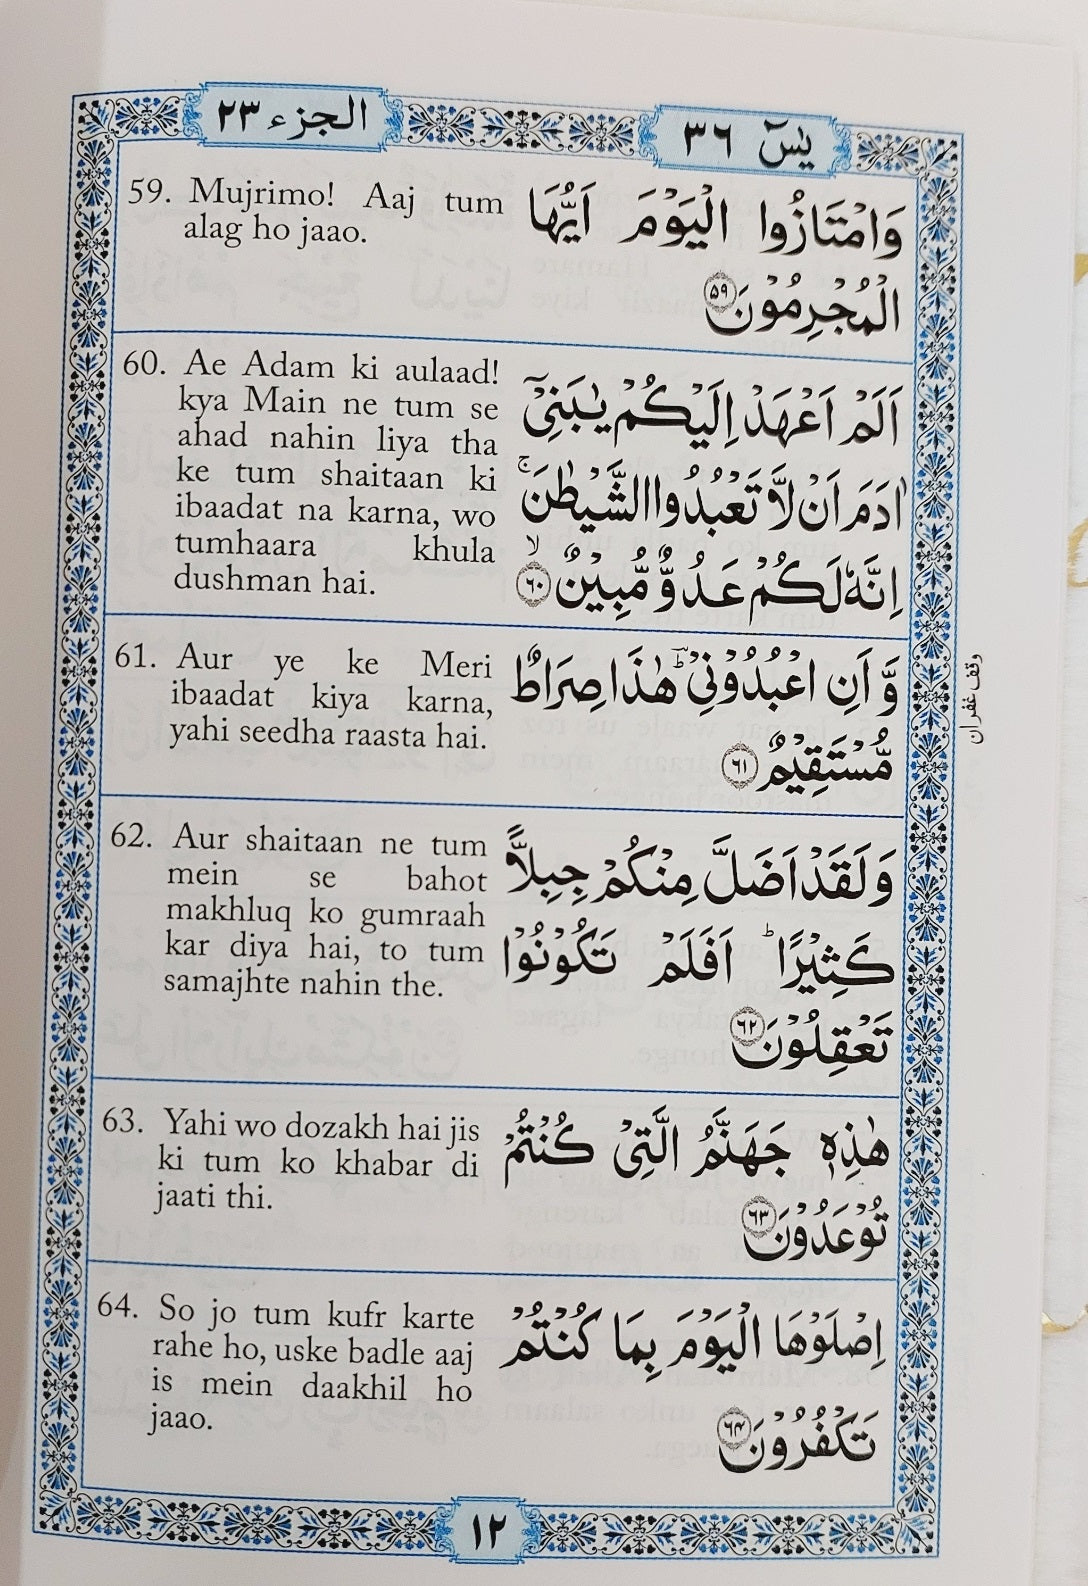 الجزء ٢٣
يٰسٓ ٣٦
59. Mujrimo! Aaj tum
alag ho jaao.
وَامْتَازُوا الْيَوْمَ اَيُّهَا
الْمُجْرِمُوْنَ ٥٩
60. Ae Adam ki aulaad!
kya Main ne tum se
ahad nahin liya tha
ke tum shaitaan ki
ibaadat na karna, wo
tumhaara khula
dushman hai.
اَلَمْ اَعْهَدْ اِلَيْكُمْ يٰبَنِیْٓ
اٰدَمَ اَنْ لَّا تَعْبُدُوا الشَّيْطٰنَ ۚ
اِنَّهٗ لَكُمْ عَدُوٌّ مُّبِيْنٌ ۙ ٦٠
61. Aur ye ke Meri
ibaadat kiya karna,
yahi seedha raasta hai.
وَّ اَنِ اعْبُدُوْنِیْ ؕ هٰذَا صِرَاطٌ
مُّسْتَقِيْمٌ ٦١
وقف غفران
62. Aur shaitaan ne tum
mein se bahot
makhluq ko gumraah
kar diya hai, to tum
samajhte nahin the.
وَلَقَدْ اَضَلَّ مِنْكُمْ جِبِلًّا
كَثِيْرًا ؕ اَفَلَمْ تَكُوْنُوْا
تَعْقِلُوْنَ ٦٢
63. Yahi wo dozakh hai jis
ki tum ko khabar di
jaati thi.
هٰذِهٖ جَهَنَّمُ الَّتِیْ كُنْتُمْ
تُوْعَدُوْنَ ٦٣
64. So jo tum kufr karte
rahe ho, uske badle aaj
is mein daakhil ho
jaao.
اِصْلَوْهَا الْيَوْمَ بِمَا كُنْتُمْ
تَكْفُرُوْنَ ٦٤
١٢